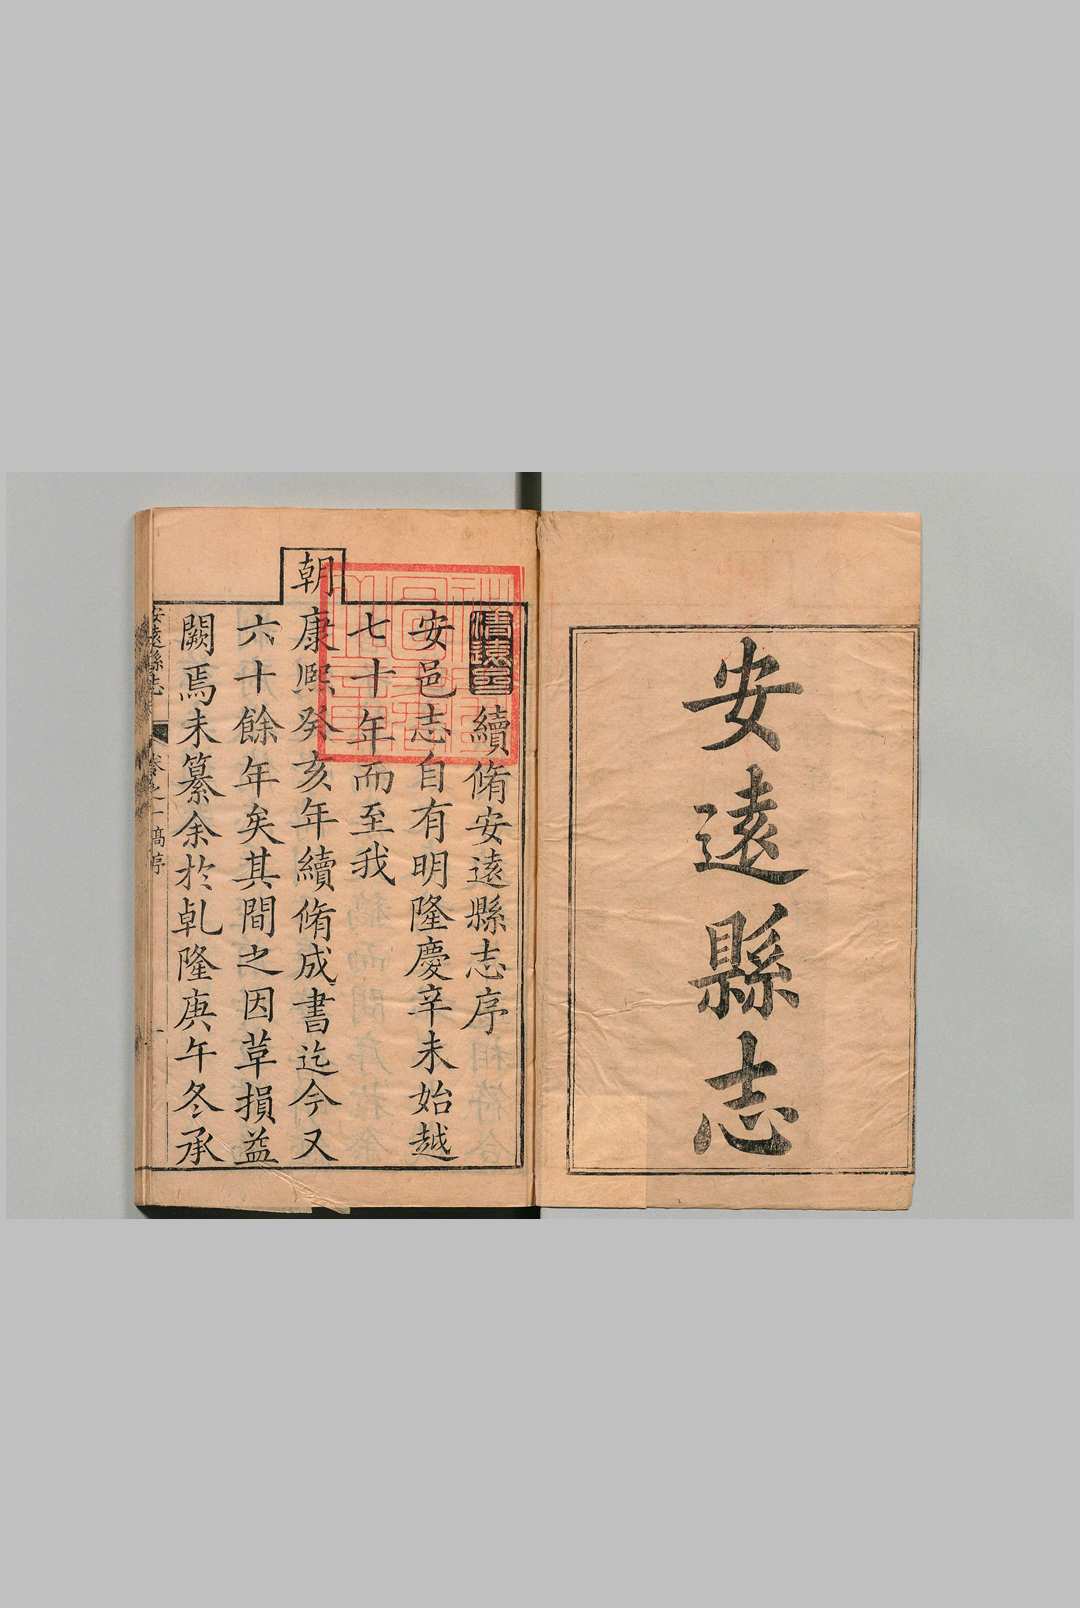 安遠縣志
續脩安遠縣志序
安邑志自有明隆慶辛未始越
七十年而至我
朝康熙癸亥年續脩成書迄今又
六十餘年矣其間之因革損益
闕焉未纂余於乾隆庚午冬承
安遠縣志 卷之一